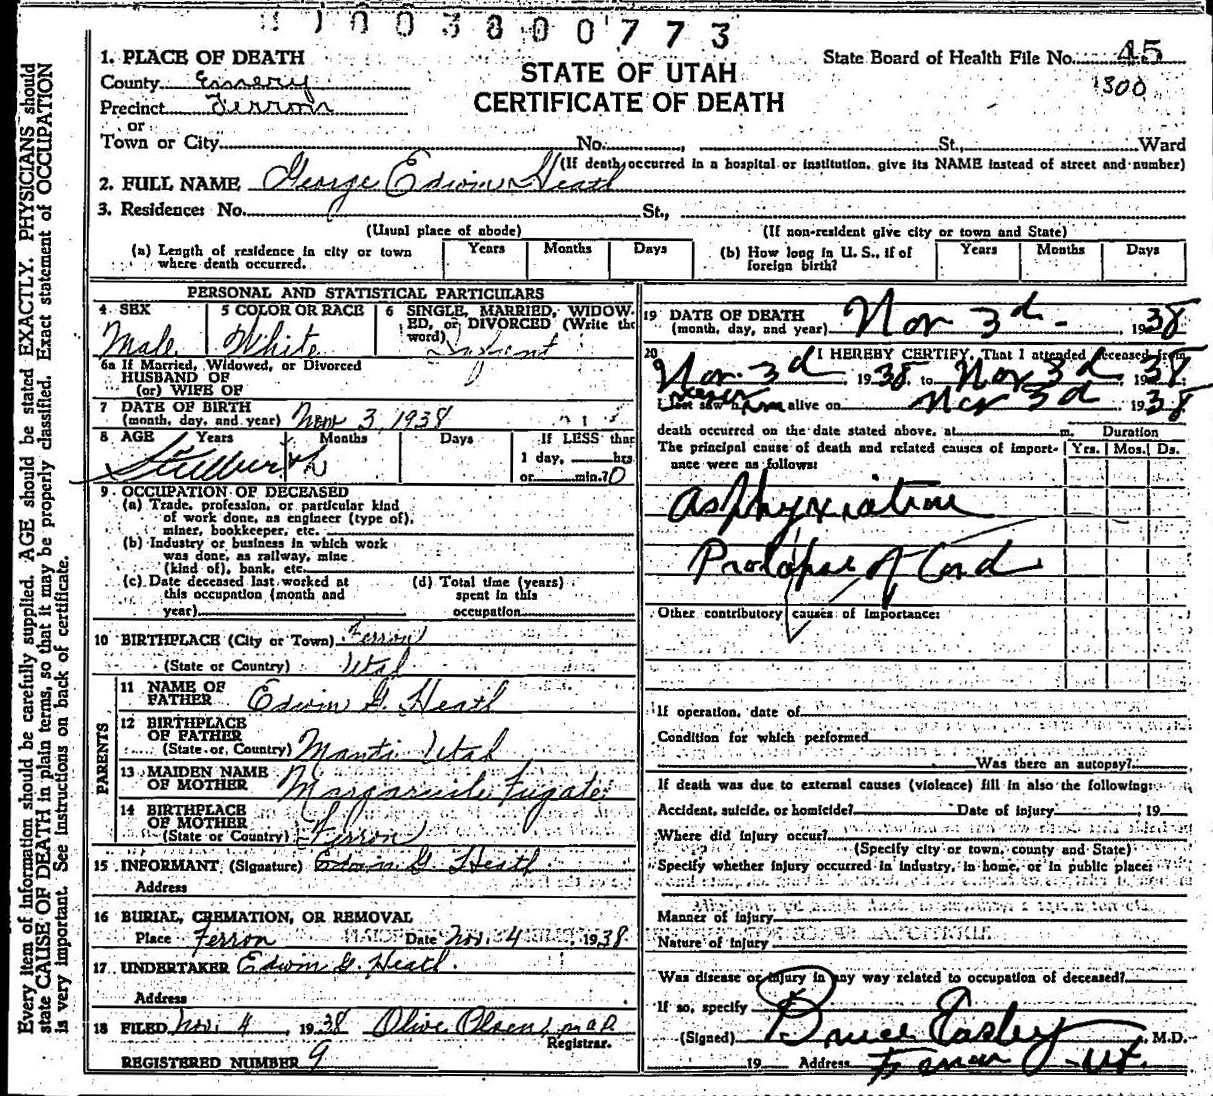 1003800773
1. PLACE OF DEATH
County Emery
Precinct Ferron
or
Town or City No. St., Ward
STATE OF UTAH
CERTIFICATE OF DEATH
State Board of Health File No. 45
1300
(If death occurred in a hospital or institution, give its NAME instead of street and number)
2. FULL NAME George Edwin Heath
3. Residence: No. St.,
(Usual place of abode) (If non-resident give city or town and State)
(a) Length of residence in city or town where death occurred. Years Months Days
(b) How long in U. S., if of foreign birth? Years Months Days
PERSONAL AND STATISTICAL PARTICULARS
4 SEX Male
5 COLOR OR RACE White
6 SINGLE, MARRIED, WIDOWED, or DIVORCED (Write the word)
6a If Married, Widowed, or Divorced
HUSBAND OF
(or) WIFE OF
7 DATE OF BIRTH
(month, day, and year) Nov 3, 1938
8 AGE Years Months Days If LESS than
1 day, hrs
or min.? 0
Stillbirth
9. OCCUPATION OF DECEASED
(a) Trade, profession, or particular kind
of work done, as engineer (type of),
miner, bookkeeper, etc.
(b) Industry or business in which work
was done, as railway, mine
(kind of), bank, etc.
(c) Date deceased last worked at
this occupation (month and
year)
(d) Total time (years)
spent in this
occupation
10 BIRTHPLACE (City or Town) Ferron
(State or Country) Utah
PARENTS
11 NAME OF
FATHER Edwin G. Heath
12 BIRTHPLACE
OF FATHER
(State or Country) Manti Utah
13 MAIDEN NAME
OF MOTHER Fugate
14 BIRTHPLACE
OF MOTHER
(State or Country) Ferron
15 INFORMANT (Signature) Edwin G. Heath
Address
16 BURIAL, CREMATION, OR REMOVAL
Place Ferron Date Nov. 4, 1938
17. UNDERTAKER Edwin G. Heath.
Address
18 FILED Nov. 4 1938 Olive Olsen
Registrar.
REGISTERED NUMBER 9
19 DATE OF DEATH
(month, day, and year) Nov 3d - 1938
20 I HEREBY CERTIFY, That I attended deceased from
Nov. 3d, 1938 to Nov 3d 1938;
I last saw him alive on Nov 3d 1938
never
death occurred on the date stated above, at m. Duration
The principal cause of death and related causes of importance were as follows: Yrs. Mos. Ds.
Asphyxiation
Prolapse of Cord
Other contributory causes of importance:
If operation, date of
Condition for which performed
Was there an autopsy?
If death was due to external causes (violence) fill in also the following:
Accident, suicide, or homicide? Date of injury , 19
Where did injury occur?
(Specify city or town, county and State)
Specify whether injury occurred in industry, in home, or in public place:
Manner of injury
Nature of injury
Was disease or injury in any way related to occupation of deceased?
If so, specify
(Signed) Bruce Easley, M.D.
19 Address Ferron - Ut.
Every item of information should be carefully supplied. AGE should be stated EXACTLY. PHYSICIANS should
state CAUSE OF DEATH in plain terms, so that it may be properly classified. Exact statement of OCCUPATION
is very important. See instructions on back of certificate.